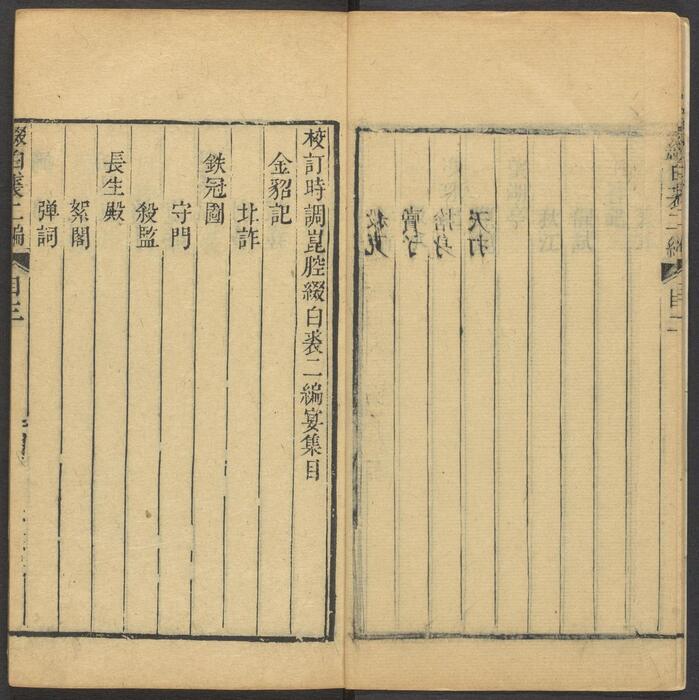 綴白裘二編 目二
天打
捨身
校訂時調崑腔綴白裘二編宴集目
金貂記
北詐
鉄冠圖
守門
殺監
長生殿
絮閣
弹詞
綴白裘二編 目三